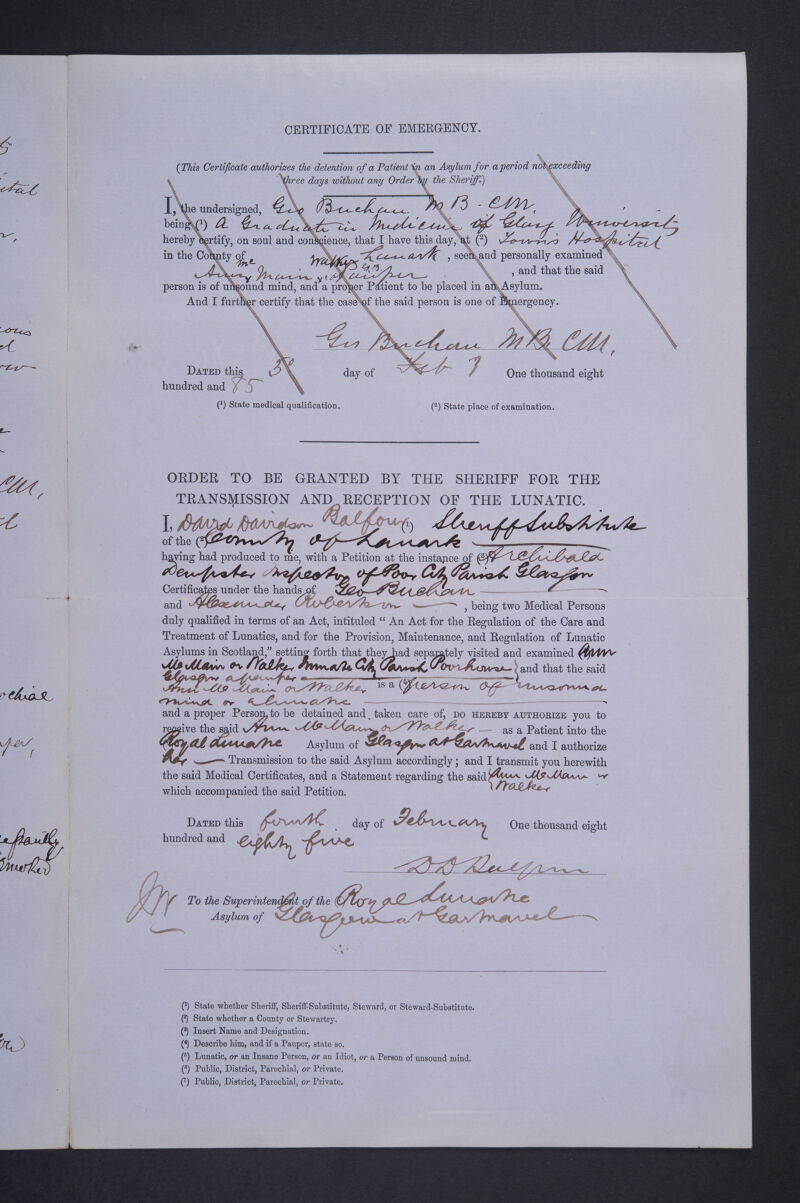 CERTIFICATE OF EMERGENCY.
(This Certificate authorizes the detention of a Patient in an Asylum for a period not exceeding
three days without any Order by the Sheriff.)
I, the undersigned, Geo Buchan M B. C M.
being (¹) A Graduate in Medicine of Glasg University
hereby certify, on soul and conscience, that I have this day, at (²) Towns Hospital
in the County of Lanark, seen and personally examined
Ann Mc Main or Walker pauper, and that the said
person is of unsound mind, and a proper Patient to be placed in an Asylum.
And I further certify that the case of the said person is one of Emergency.
Geo Buchan MB, CM,
DATED this 3 day of Feb One thousand eight
hundred and 85
(¹) State medical qualification. (²) State place of examination.
ORDER TO BE GRANTED BY THE SHERIFF FOR THE
TRANSMISSION AND RECEPTION OF THE LUNATIC.
I, David Davidson Balfour (¹) Sheriff Substitute
of the (²) County of Lanark
having had produced to me, with a Petition at the instance of (³) Archibald
Dempster Inspector of Poor City Parish Glasgow
Certificates under the hands of Geo Buchan
and Alexander Robertson, being two Medical Persons
duly qualified in terms of an Act, intituled “ An Act for the Regulation of the Care and
Treatment of Lunatics, and for the Provision, Maintenance, and Regulation of Lunatic
Asylums in Scotland,” setting forth that they had separately visited and examined Ann
Mc Main or Walker Inmate City Parish Poorhouse and that the said
Glasgow a pauper
Ann Mc Main or Walker is a (⁵) person of unsound
mind or a lunatic
and a proper Person to be detained and taken care of, DO HEREBY AUTHORIZE you to
receive the said Ann Mc Main or Walker as a Patient into the
Royal Lunatic Asylum of Glasgow at Gartnavel and I authorize
her Transmission to the said Asylum accordingly; and I transmit you herewith
the said Medical Certificates, and a Statement regarding the said Ann Mc Main or
Walker
which accompanied the said Petition.
DATED this fourth day of February One thousand eight
hundred and eighty five
D D Balfour
To the Superintendent of the (⁶) Royal Lunatic
Asylum of Glasgow at Gartnavel
(¹) State whether Sheriff, Sheriff-Substitute, Steward, or Steward-Substitute.
(²) State whether a County or Stewartry.
(³) Insert Name and Designation.
(⁴) Describe him, and if a Pauper, state so.
(⁵) Lunatic, or an Insane Person, or an Idiot, or a Person of unsound mind.
(⁶) Public, District, Parochial, or Private.
(⁷) Public, District, Parochial, or Private.